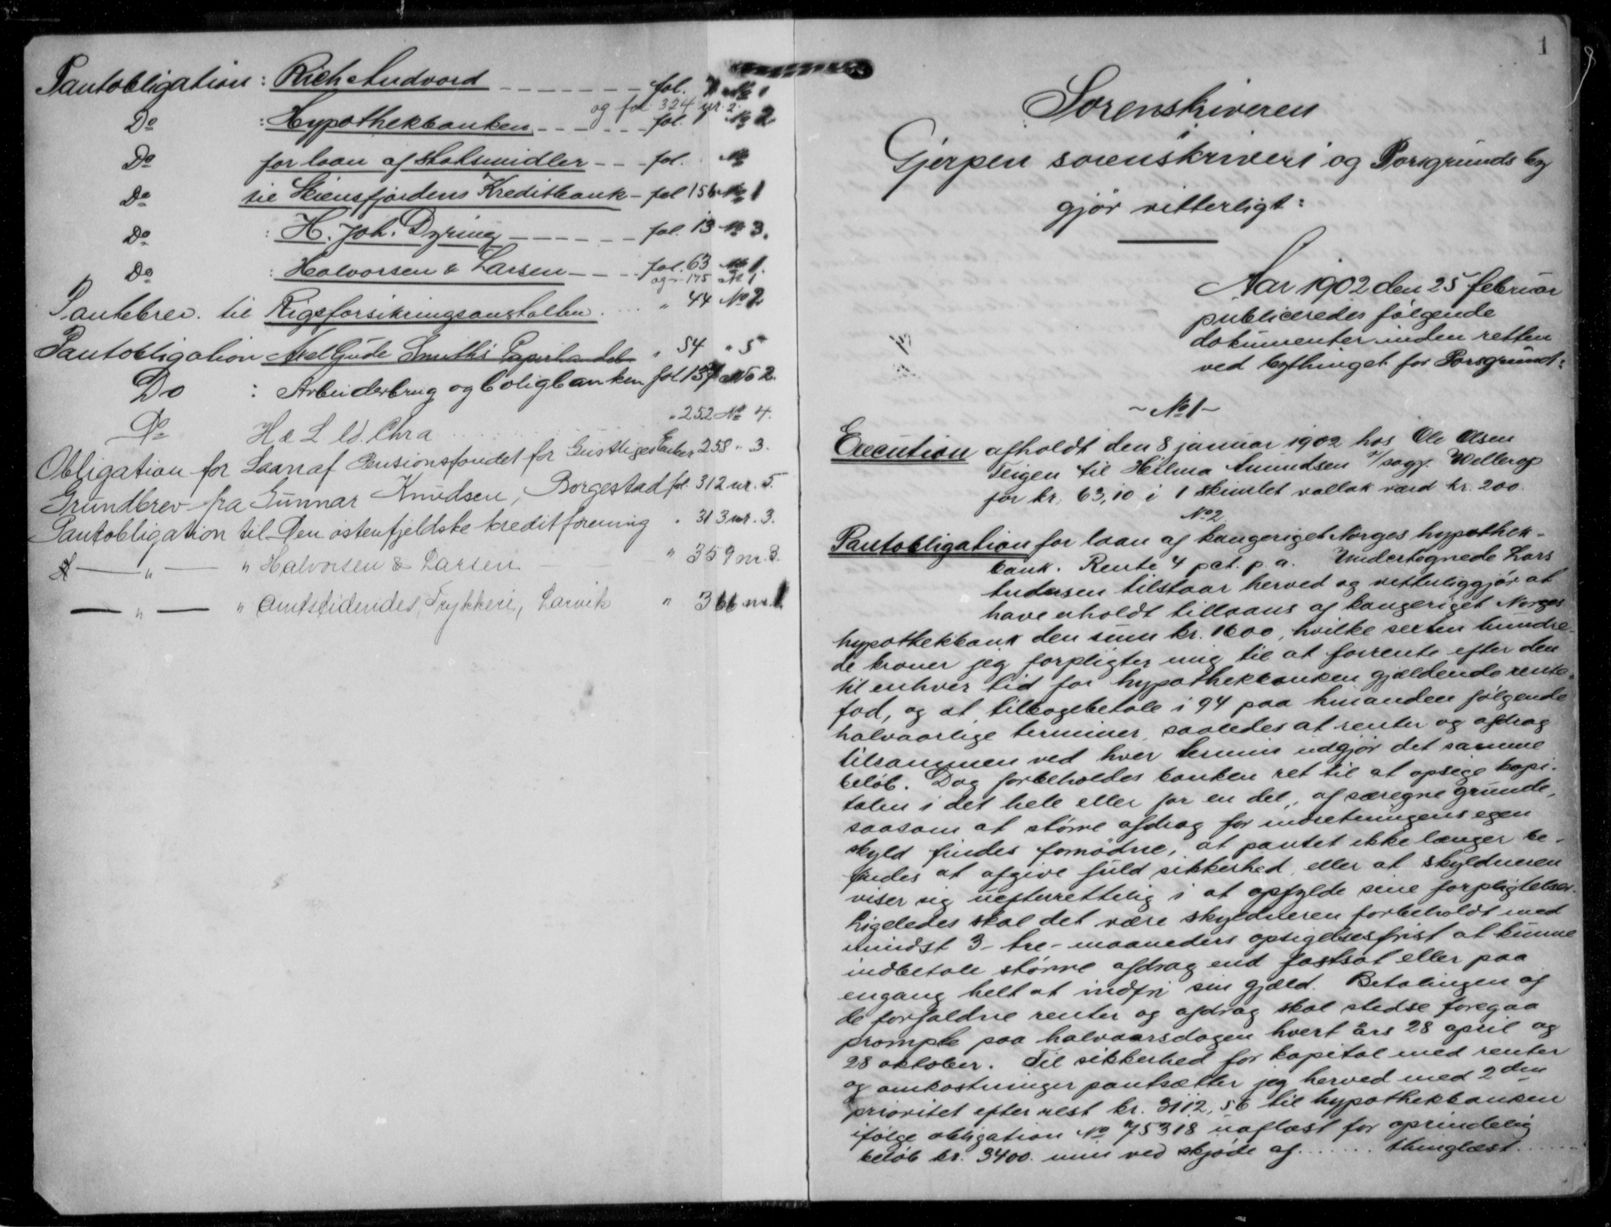 Pantobligation: Rich Andvord fol. 7 No 1
og fol. 324 nr. 2.
Do : Hypothekbanken fol. 1 No 2
Do for laan af Statsmidler fol. No
Do til Skiensfjordens Kreditbank fol 156 No 1
Do : H. Joh. Dyring fol. 13 No 3.
Do : Halvorsen & Larsen fol. 63 No 1.
og 175 No 1
Pantebrev til Rigsforsikringsanstalten " 44 No 2
Pantobligation Axel Gude Smiths Papirhandel " 54 " 5
Do : Arbeiderbrug og boligbanken fol 137 No 2.
Do H & L ld. Chra " 252 No 4.
Obligation for Laan af Pensionsfondet for Enker 258 " 3.
Grundbrev fra Gunnar Knudsen, Borgestad fol. 312 nr. 5.
Pantobligation til Den østenfjeldske kreditforening " 313 nr. 3.
— " — " Halvorsen & Larsen " 359 nr. 3.
— " — " Amtstidendes Trykkeri, Larvik " 366 nr 1.
1
Sorenskriveren
Gjerpen sorenskriveri og Porsgrunds by
gjør vitterligt:
Aar 1902 den 25 februar
publiceredes følgende
dokumenter inden retten
ved bythinget for Porsgrund:
~ No 1 ~
Execution afholdt den 8 januar 1902 hos Ole Olsen
Teigen til Helena Amundsen v/sagf. Wellerop
for kr. 63,10 i 1 skimlet vallak værd kr. 200.
No 2
Pantobligation for laan af kongeriget Norges hypothek-
bank. Rente 4 pct. p. a. Undertegnede Lars
Andersen tilstaar herved og vitterliggjør at
have erholdt tillaans af kongeriget Norges
hypothekbank den sum kr. 1600, hvilke sexten hundre-
de kroner jeg forpligter mig til at forrente efter den
til enhver tid for hypothekbanken gjældende rente-
fod, og at tilbagebetale i 94 paa hinanden følgende
halvaarlige terminer, saaledes at renter og afdrag
tilsammen ved hver termin udgjør det samme
beløb. Dog forbeholdes banken ret til at opsige kapi-
talen i det hele eller for en del, af særegne grunde,
saasom at større afdrag for indretningens egen
skyld findes fornødne, at pantet ikke længer be-
findes at afgive fuld sikkerhed, eller at skyldneren
viser sig uefterrettelig i at opfylde sine forpligtelser.
Ligeledes skal det være skyldneren forbeholdt med
mindst 3- tre- maaneders opsigelsesfrist at kunne
indbetale større afdrag end fastsat eller paa
engang helt at indfri sin gjæld. Betalingen af
de forfaldne renter og afdrag skal stedse foregaa
prompte paa halvaarsdagen hvert års 28 april og
28 oktober. Til sikkerhed for kapital med renter
og omkostninger pantsætter jeg herved med 2den
prioritet efter rest kr. 3112,56 til hypothekbanken
ifølge obligation No 75318 uaflæst for oprindelig
beløb kr. 3400. min ved skjøde af ...... thinglæst ......